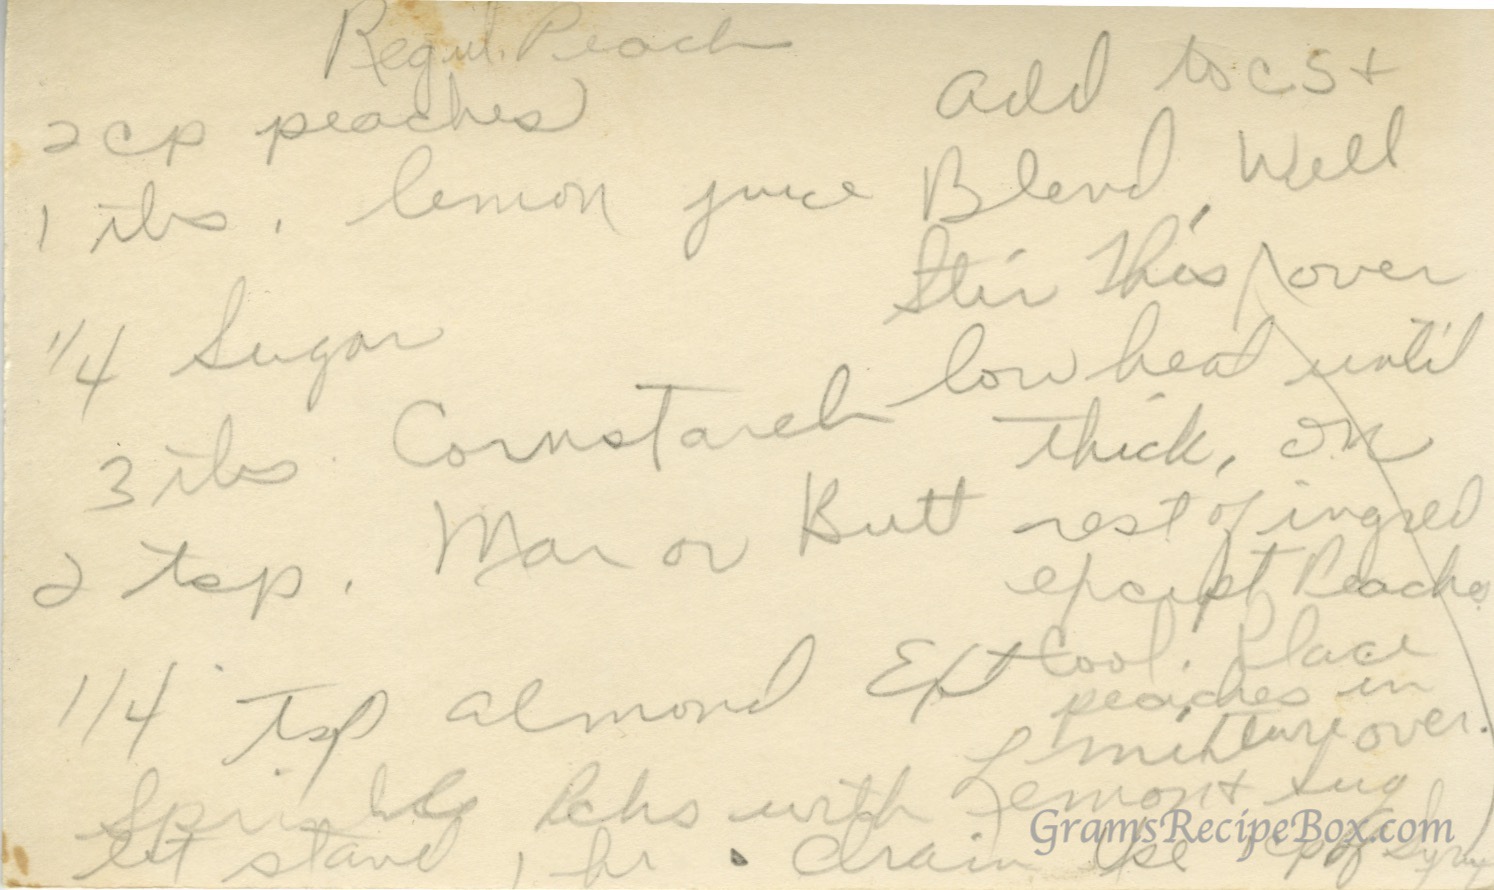 Regul. Peach
2 cp peaches
1 tbs. lemon juice
1/4 Sugar
3 tbs. Cornstarch
2 tsp. Mar or Butt
1/4 tsp almond Ext
Sprinkle Pchs with Lemon + Sug
let stand 1 hr. drain Use 1 cp of Syrup
add to CS +
Blend Well
Stir This over
low heat until
thick, on
rest of ingred
except Peaches
Cool. Place
peaches in
mixture over.
GramsRecipeBox.com